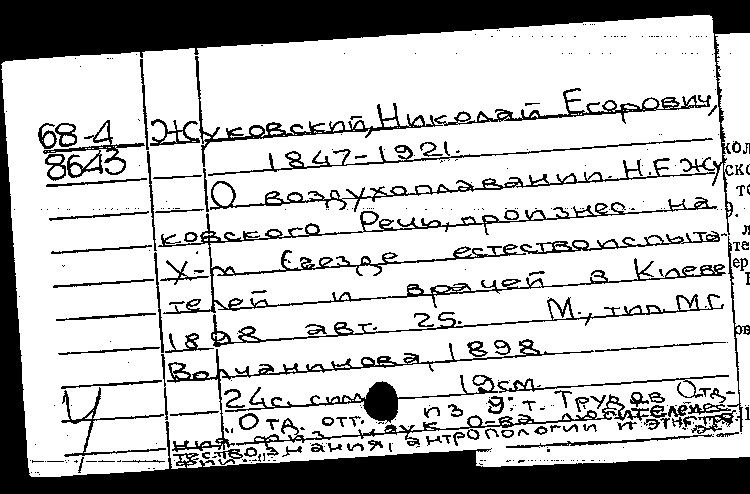 68-4
8643
Жуковский, Николай Егорович,
1847-1921.
О воздухоплавании. Н.Е. Жу
ковского. Речь, произнес. на
X-м съезде естествоиспыта-
телей и врачей в Киеве
1898 авг. 25. М., тип. М.Г.
Волчанинова, 1898.
24с. с илл. 19см.
"Отд. отт. из 9: т. Трудов Отд-
ния физ. наук О-ва любителей ес-
тествознания, антропологии и этногра-
фии."